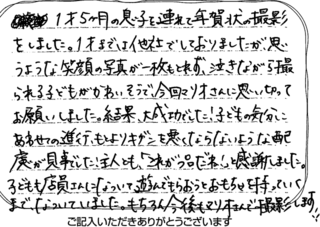 1才5ヶ月の息子を連れて年賀状の撮影
をしました。1才までは他社でしておりましたが、思
うような笑顔の写真が一枚もとれず、泣きながら撮
られる子どもがかわいそうで、今回マリオさんに思い切って
お願いしました。結果、大成功でした!子どもの気分に
あわせての進行、もとよりキゲンを悪くならないような配
慮が見事でした。主人とも、「これが一品だね!」と感謝しました。
子どもも店員さんになついて遊んでもらおうとおもちゃを持っていく
までなついていました。もちろん今後もマリオさんで撮影します!!
ご記入いただきありがとうございます